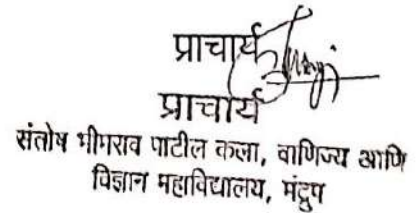 प्राचार्य
प्राचार्य
संतोष भीमराव पाटील कला, वाणिज्य आणि
विज्ञान महाविद्यालय, मंद्रुप